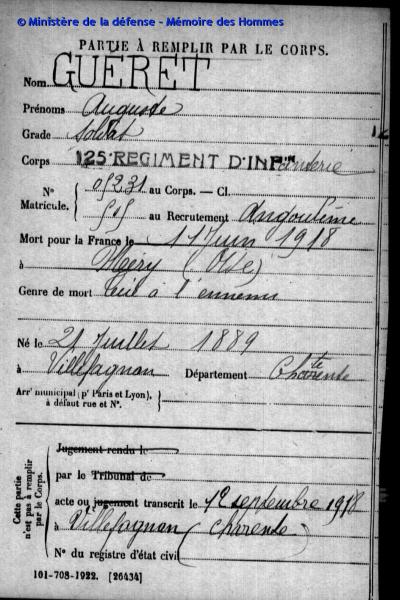 © Ministère de la défense - Mémoire des Hommes
PARTIE À REMPLIR PAR LE CORPS.
Nom GUERET
Prénoms Auguste
Grade Soldat
Corps 125e REGIMENT D'INFanterie
N° Matricule. 05231 au Corps. — Cl.
505 au Recrutement Angoulême
Mort pour la France le 11 Juin 1918
à Mery (Oise)
Genre de mort tué à l'ennemi
Né le 21 Juillet 1889
à Villefagnan Département Charente
Arrt municipal (pr Paris et Lyon), à défaut rue et N°.
Cette partie n'est pas à remplir par le Corps.
Jugement rendu le
par le Tribunal de
acte ou jugement transcrit le 12 septembre 1918
à Villefagnan (Charente)
N° du registre d'état civil
101-708-1922. [26434]